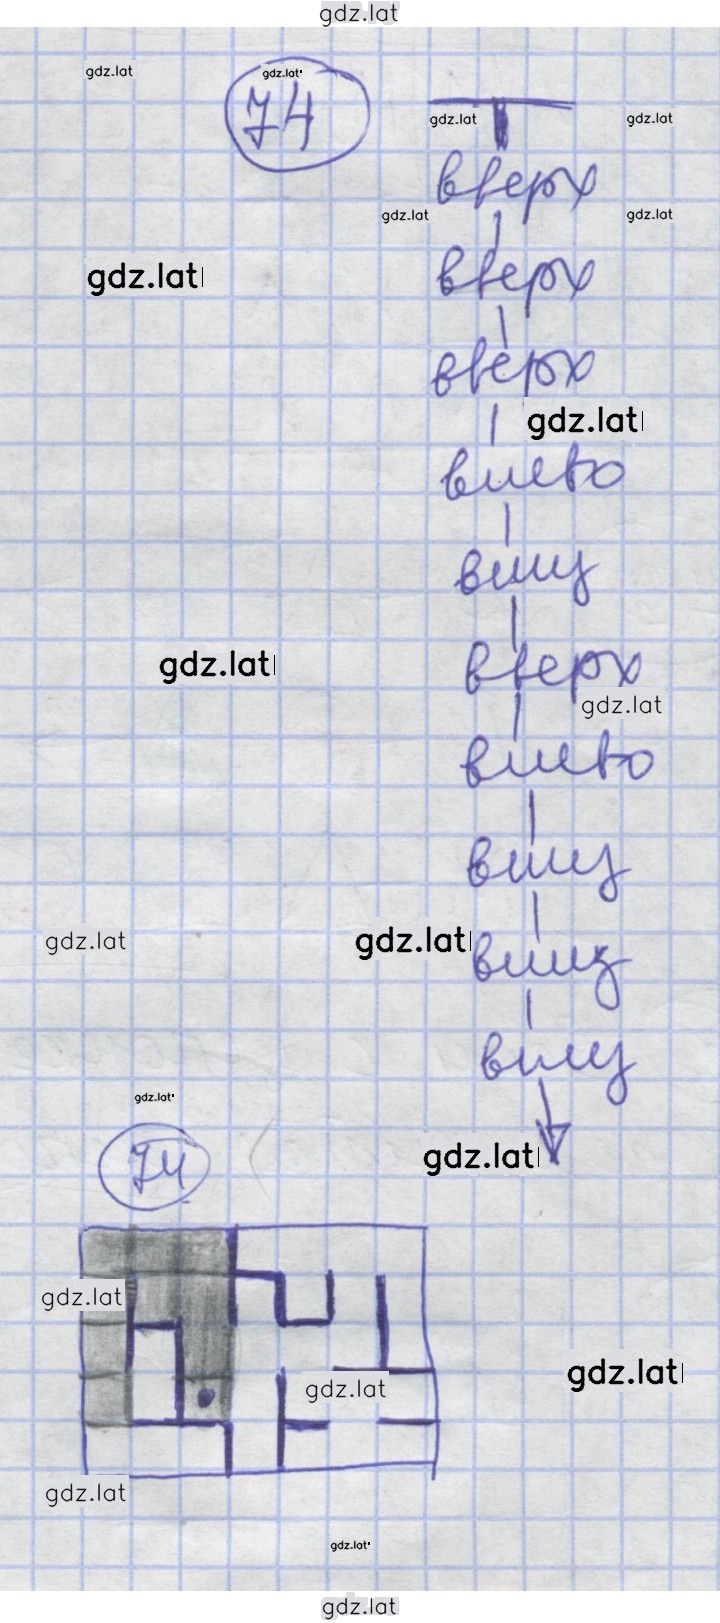 gdz.lat
gdz.lat
gdz.lat
74
gdz.lat
gdz.lat
вверх
gdz.lat
gdz.lat
вверх
gdz.lat
вверх
gdz.lat
влево
вниз
gdz.lat
вверх
gdz.lat
влево
вниз
gdz.lat
gdz.lat
вниз
вниз
gdz.lat
gdz.lat
74
gdz.lat
gdz.lat
gdz.lat
gdz.lat
gdz.lat
gdz.lat